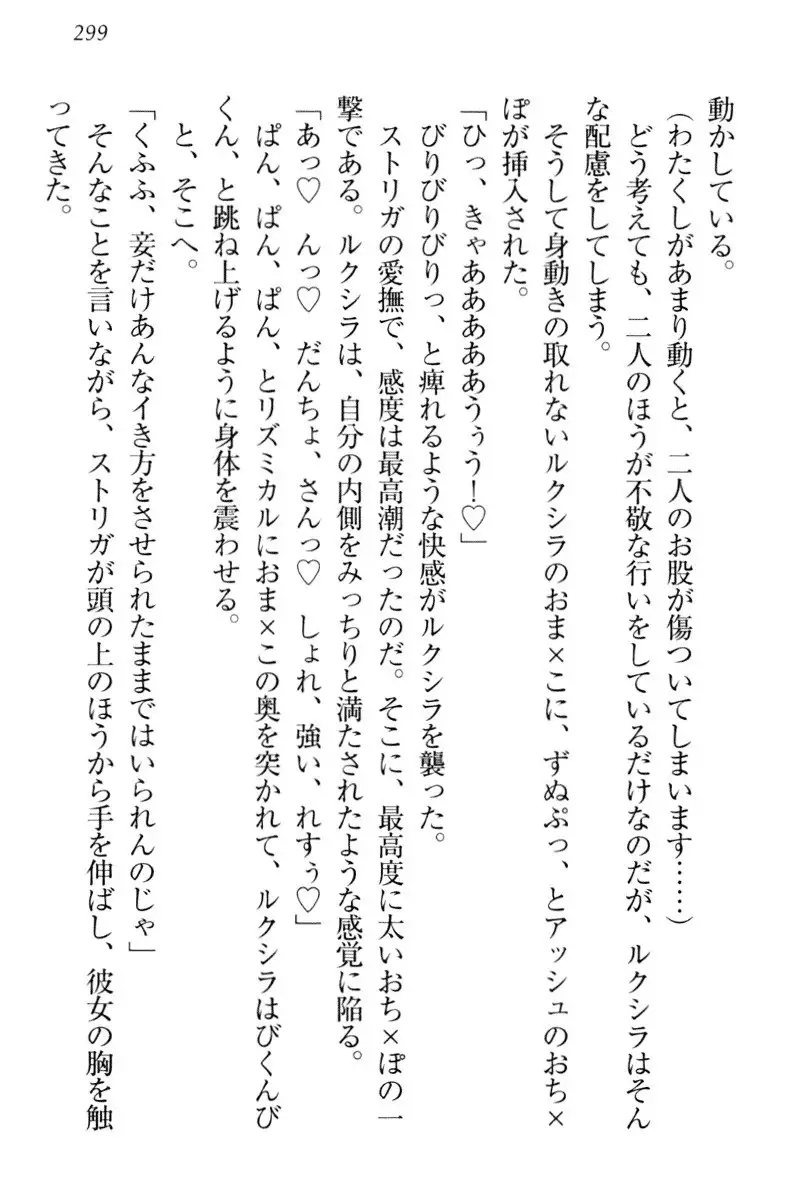 299
動かしている。
(わたくしがあまり動くと、二人のお股が傷ついてしまいます……)
どう考えても、二人のほうが不敬な行いをしているだけなのだが、ルクシラはそん
な配慮をしてしまう。
そうして身動きの取れないルクシラのおま×こに、ずぬぷっ、とアッシュのおち×
ぽが挿入された。
「ひっ、きゃあああああうぅう！♡」
びりびりびりっ、と痺れるような快感がルクシラを襲った。
ストリガの愛撫で、感度は最高潮だったのだ。そこに、最高度に太いおち×ぽの一
撃である。ルクシラは、自分の内側をみっちりと満たされたような感覚に陥る。
「あっ♡　んっ♡　だんちょ、さんっ♡　しょれ、強い、れすぅ♡」
ぱん、ぱん、ぱん、とリズミカルにおま×この奥を突かれて、ルクシラはびくんび
くん、と跳ね上げるように身体を震わせる。
と、そこへ。
「くふふ、妾だけあんなイき方をさせられたままではいられんのじゃ」
そんなことを言いながら、ストリガが頭の上のほうから手を伸ばし、彼女の胸を触
ってきた。